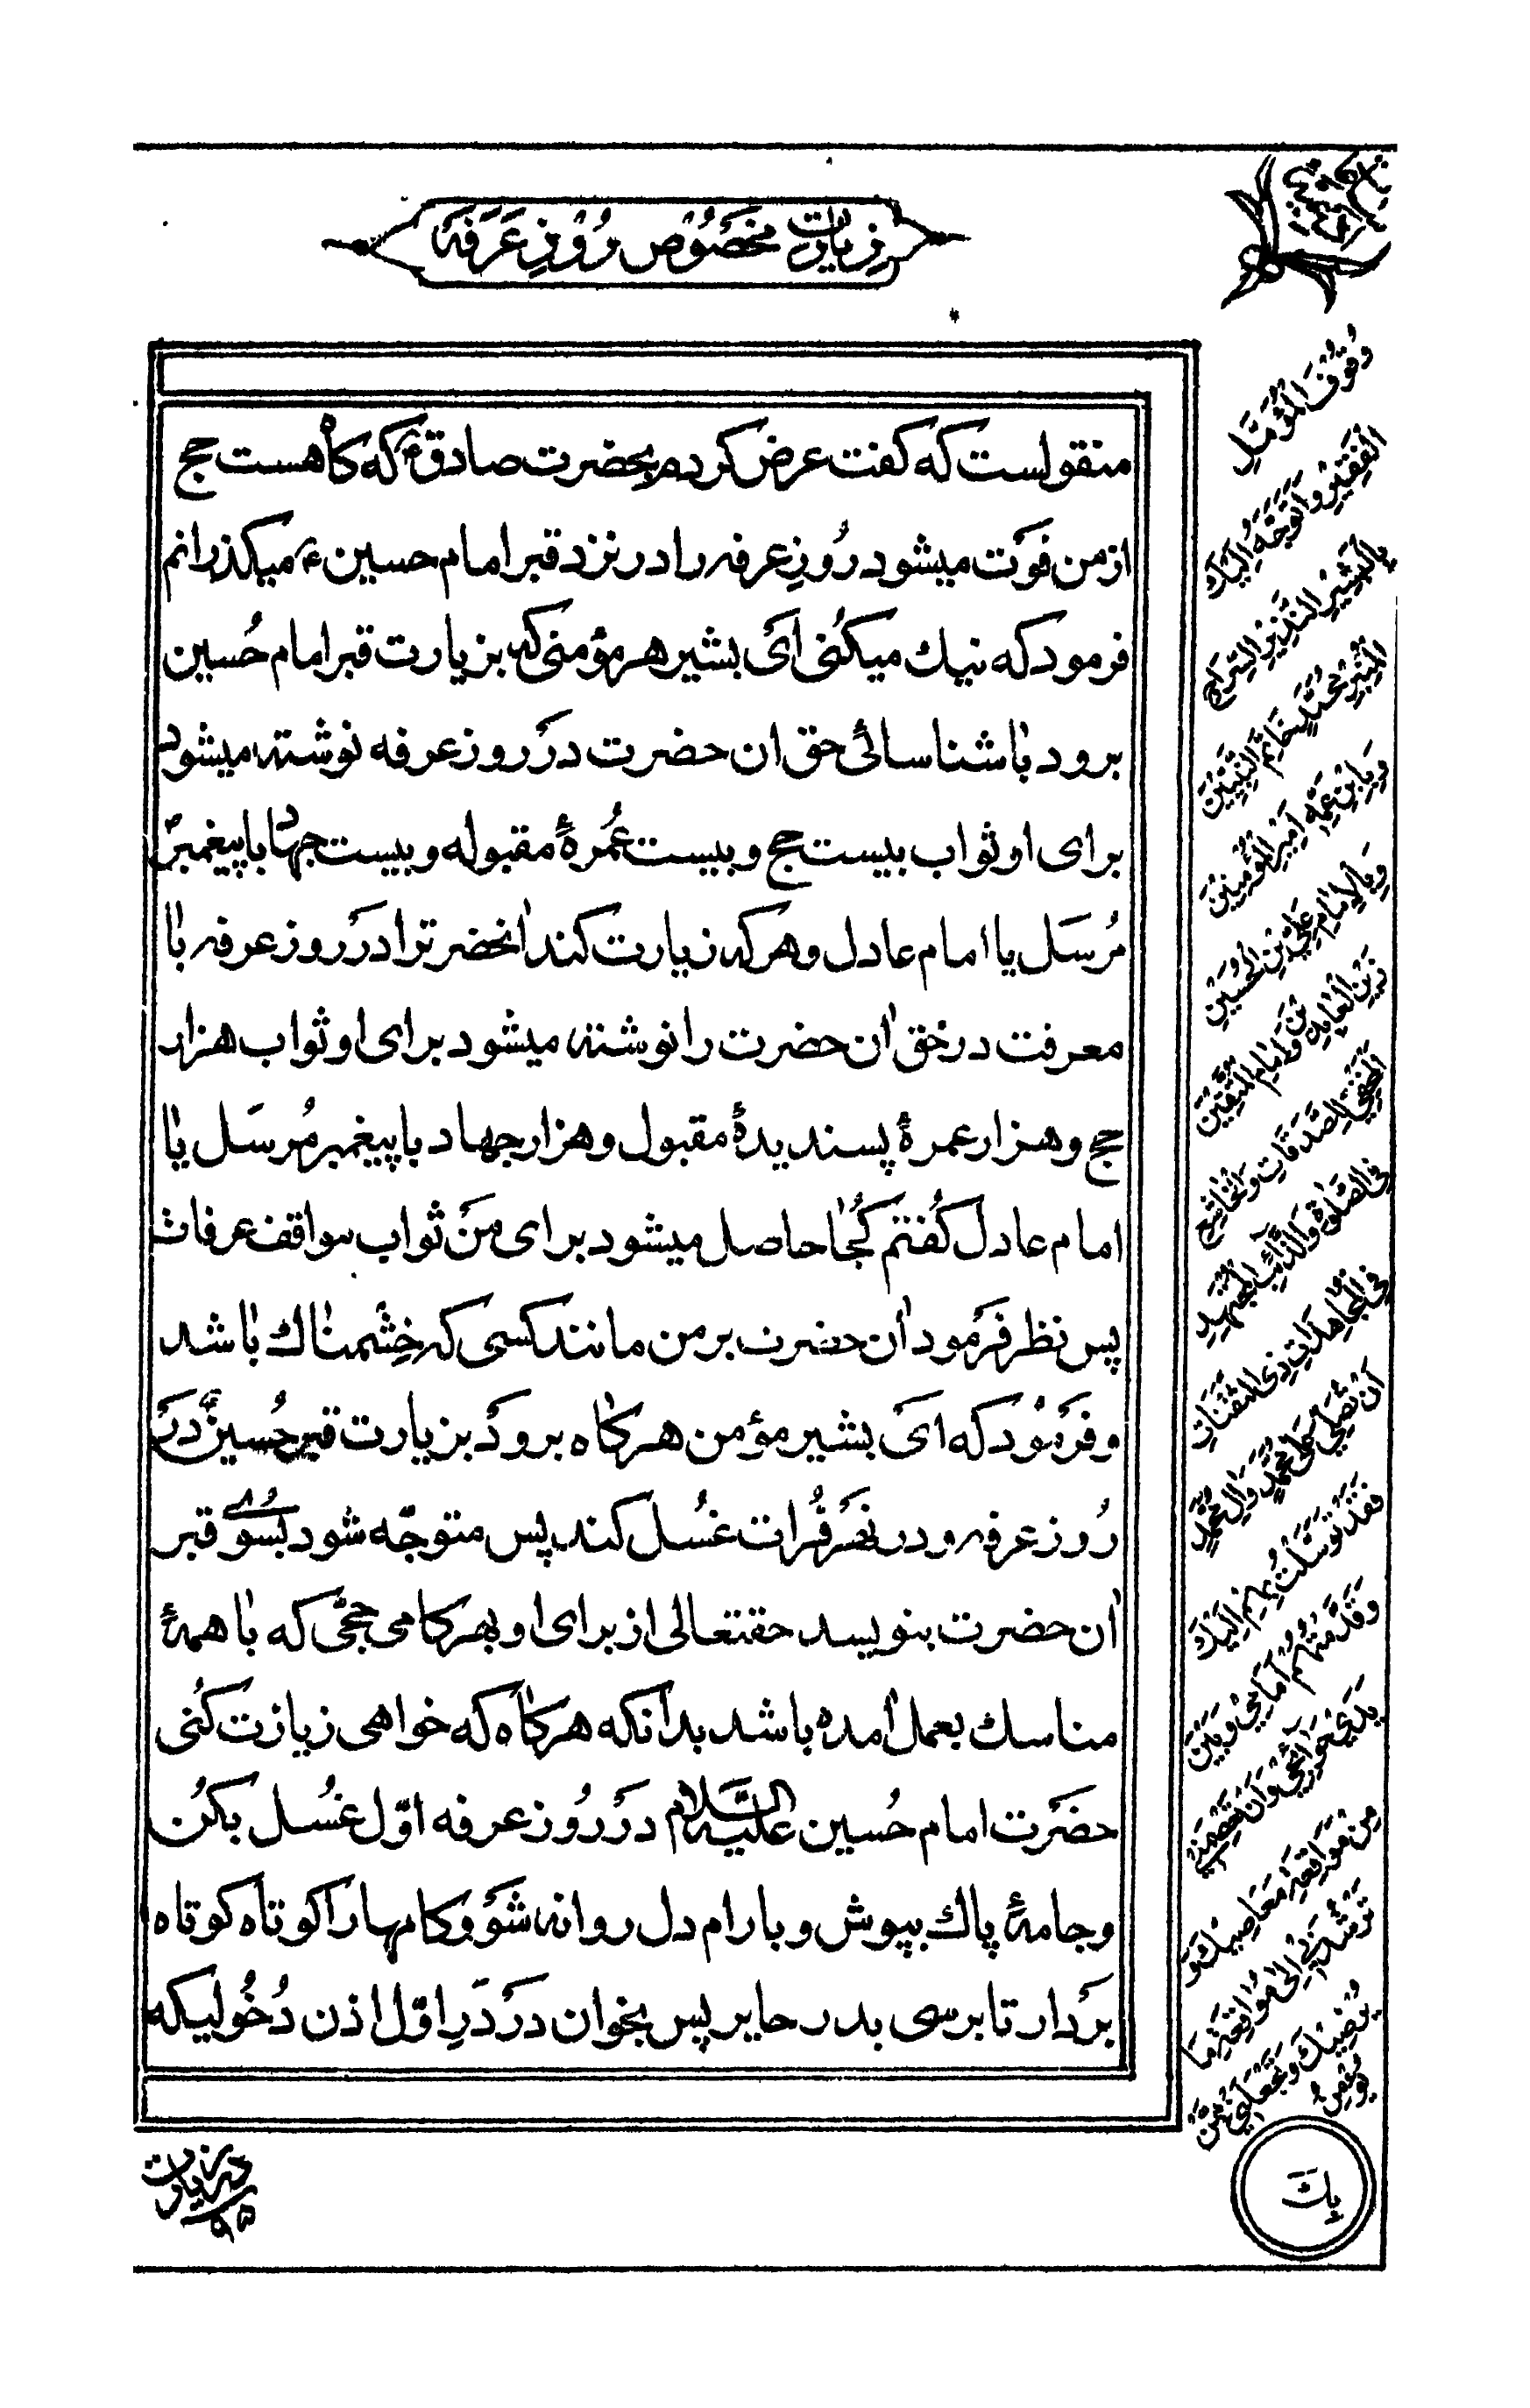 زیارت مخصوص رُوْزِ عَرَفَه
منقولست که کفت عرض کردم بحضرت صادق ع که کاه هست حج
از من فوَت میشود رُوزِ عرفه را در نزد قبر امام حسین ع میکذرانم
فرمود که نیك میکُنی اَی بشیر هر مؤمنی که بزیارت قبر امام حُسین
برود باشناسائی حق ان حضرت دَر روز عرفه نوشته میشود
برای او ثواب بیست حج و بیست عُمرهٔ مقبوله و بیست جهاد با پیغمبر
مُرسَل یا امام عادل و هر که زیارت کند انحضرترا دَر روز عرفه با
معرفت در حق ان حضرت را نوشته میشود برای او ثواب هزار
حج و هزار عمرهٔ پسندیدهٔ مقبول و هزار جهاد با پیغمبر مُرسَل یا
امام عادل کُفتم کُجا حاصل میشود برای مَن ثواب مواقف عرفات
پس نظر فَرمود ان حضرت بر من مانند کسی که خِشمناك باشد
و فَرمُود که ای بشیر مؤمن هر کاه برود بزیارت قبر حُسین ع دَر
رُوز عرفه و در نهَر فُرات غُسل کند پس متوجّه شود بسُوی قبر
ان حضرت بنویسد حقتعالی از برای او بهر کامی حجّی که با همهٔ
مناسك بعمل امده باشد بدانکه هر کاه که خواهی زیارت کُنی
حضَرت امام حُسین علیه السّلام دَر رُوز عرفه اوّل غُسل بکُن
و جامهٔ پاك بپوش و بارام دل روانه شَو و کامهارا کوتاه کوتاه
بَردار تا برسی بدر حایر پس بخوان دَر دَرِ اوّل اذن دُخُولیکه
وُقُوْفَ الْمُؤَمِّلِ
الْفَقِيْرِ وَاَتَوَجَّهُ اِلَيْكَ
بِالْبَشِيْرِ النَّذِيْرِ السِّرَاجِ
الْمُنِيْرِ مُحَمَّدٍ خَاتَمِ النَّبِيّيْنَ
وَبِابْنِ عَمِّهِ اَمِيْرِ الْمُؤْمِنِيْنَ
وَبِالْاِمَامِ عَلِيِّ بْنِ الْحُسَيْنِ
زَيْنِ الْعَابِدِيْنَ وَاِمَامِ الْمُتَّقِيْنَ
الْمُخْفِيْ لِلصَّدَقَاتِ وَالْخَاشِعِ
فِي الصَّلٰوةِ وَالدَّآئِبِ الْمُجْتَهِدِ
فِي الْمُجَاهَدَاتِ ذِي الثَّفَنَاتِ
اَنْ تُصَلِّيَ عَلٰى مُحَمَّدٍ وَاٰلِ مُحَمَّدٍ
فَقَدْ تَوَسَّلْتُ بِهِمْ اِلَيْكَ
وَقَدَّمْتُهُمْ اَمَامِيْ وَبَيْنَ
يَدَيْ حَوَآئِجِيْ وَاَنْ تَعْصِمَنِيْ
مِنْ مُوَاقَعَةِ مَعَاصِيْكَ وَ
تُرْشِدَنِيْ اِلٰى مُوَافَقَةِ مَا
يُرْضِيْكَ وَتَجْعَلَنِيْ مِمَّنْ
يُؤْمِنُ
بِكَ
در زیارت
۹۵